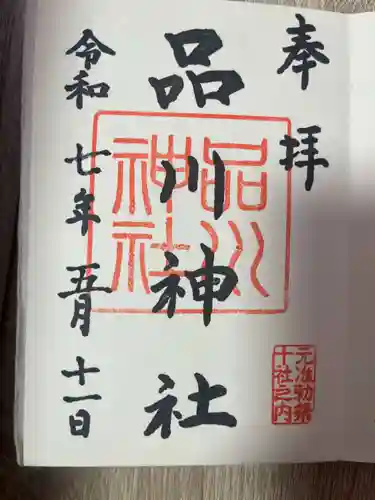 奉拝
品川神社
令和七年五月十一日
品川神社
元准勅祭
十社之内